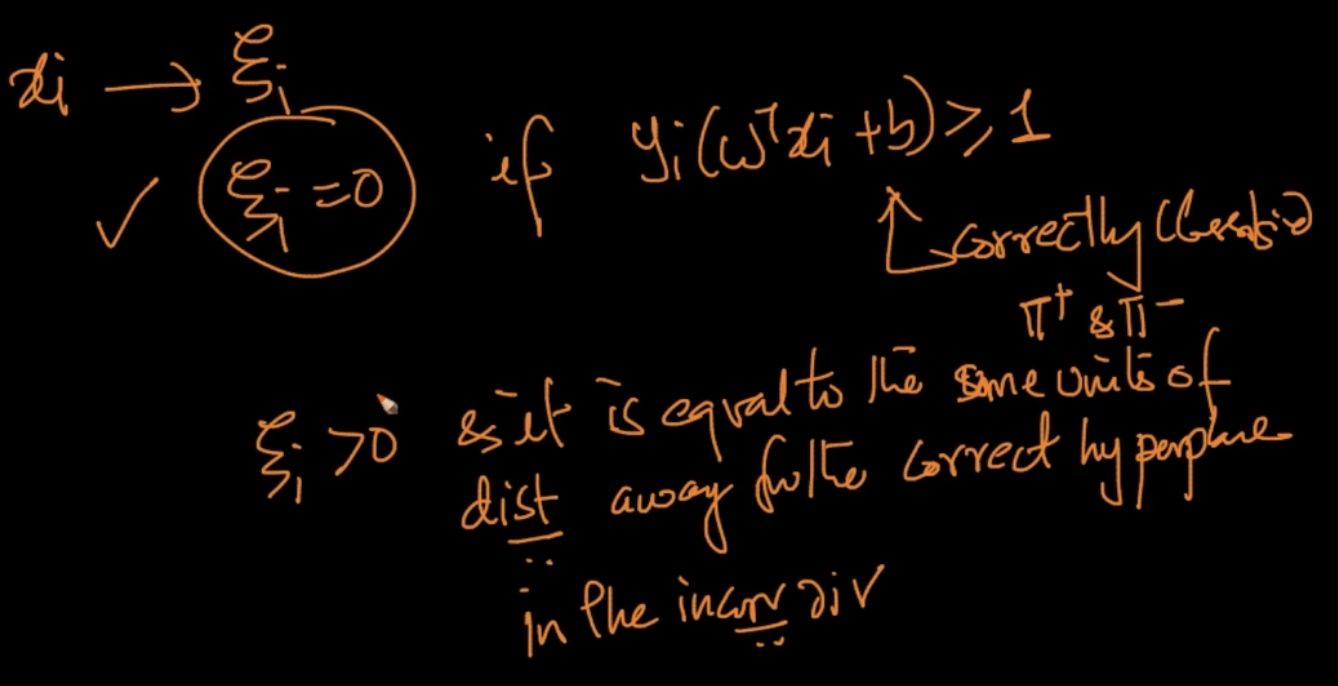 xi → ξi
✓ ξi = 0 if yi(wᵀxi + b) ≥ 1
correctly classified
π⁺ & π⁻
ξi > 0 & it is equal to the some units of
dist away from the correct hyperplane
in the incorr dir